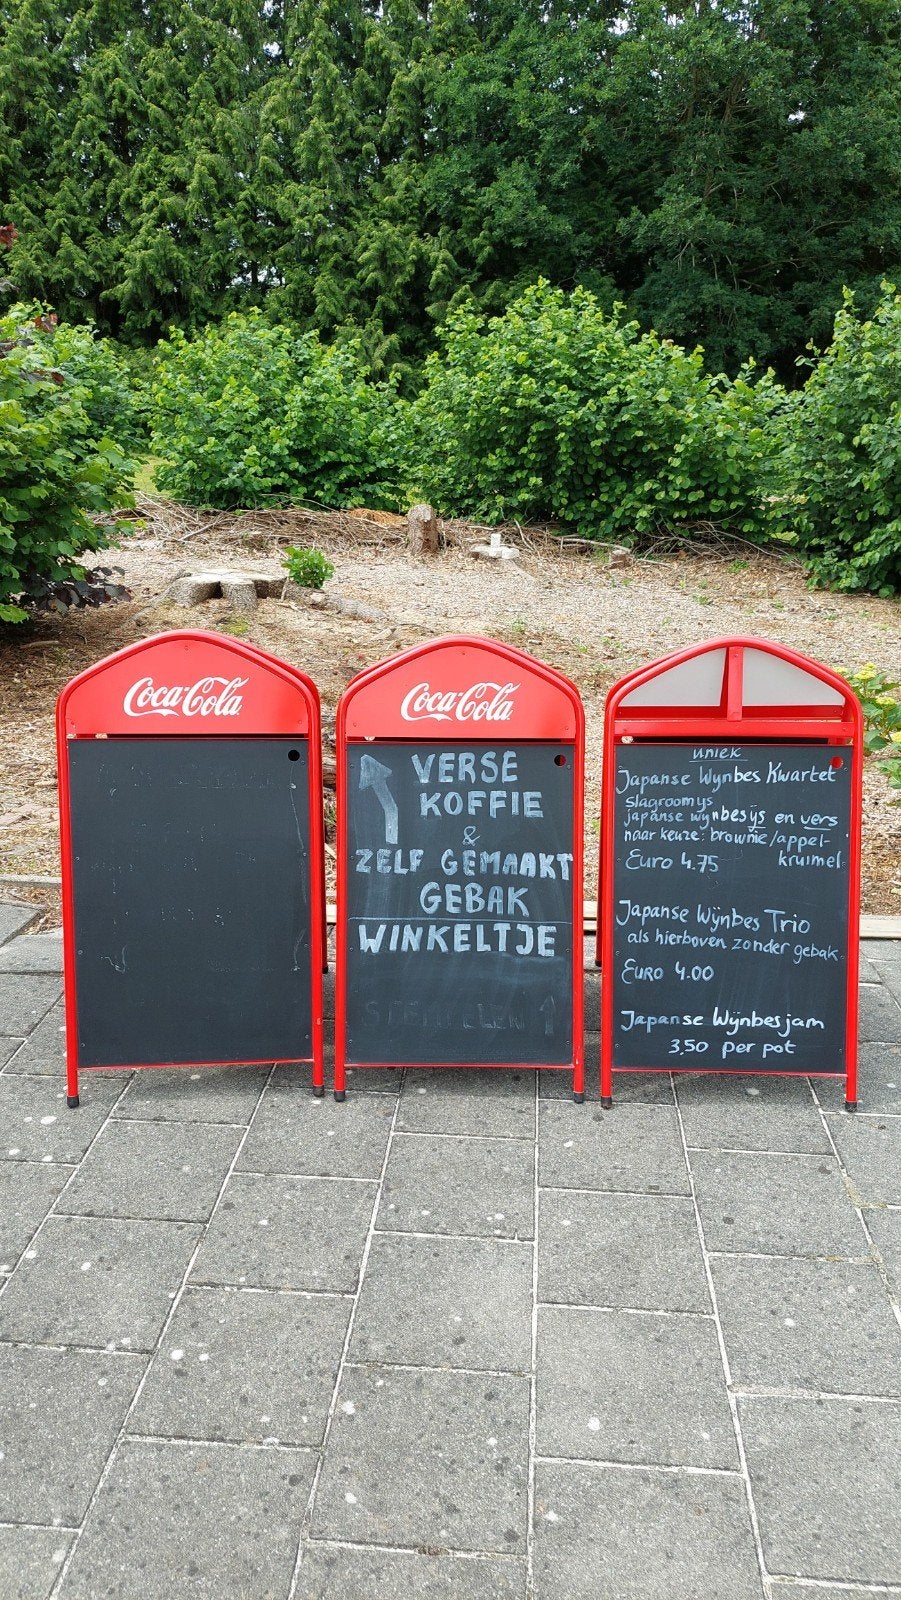 Coca-Cola
Coca-Cola
VERSE
KOFFIE
&
ZELF GEMAAKT
GEBAK
WINKELTJE
uniek
Japanse Wynbes Kwartet
slagroomys
japanse wynbesijs en vers
naar keuze: brownie/appel-
kruimel
Euro 4.75
Japanse Wijnbes Trio
als hierboven zonder gebak
Euro 4.00
Japanse Wijnbesjam
3,50 per pot